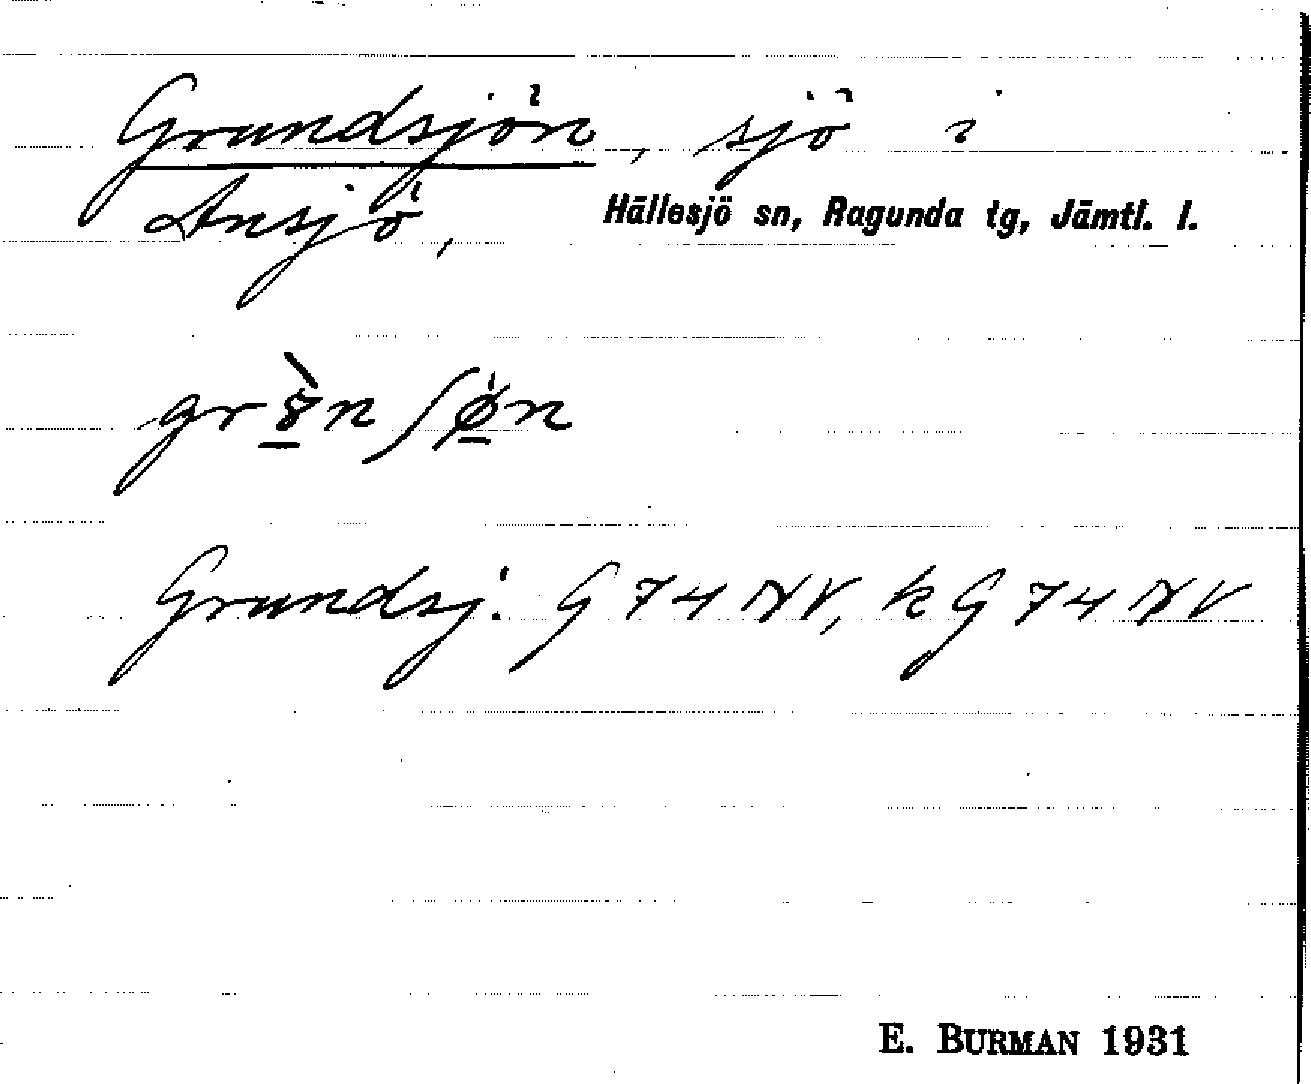 Grundsjön, sjö i
Ansjö, Hällesjö sn, Ragunda tg, Jämtl. l.
Grundsj: G 74 NV, k G 74 NV
E. BURMAN 1931